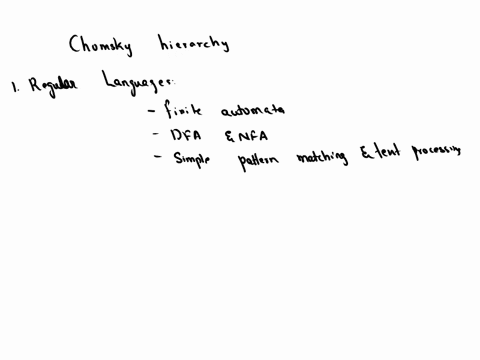 Chomsky hierarchy
1. Regular Languages:
- finite automata
- DFA & NFA
- Simple pattern matching & text processing